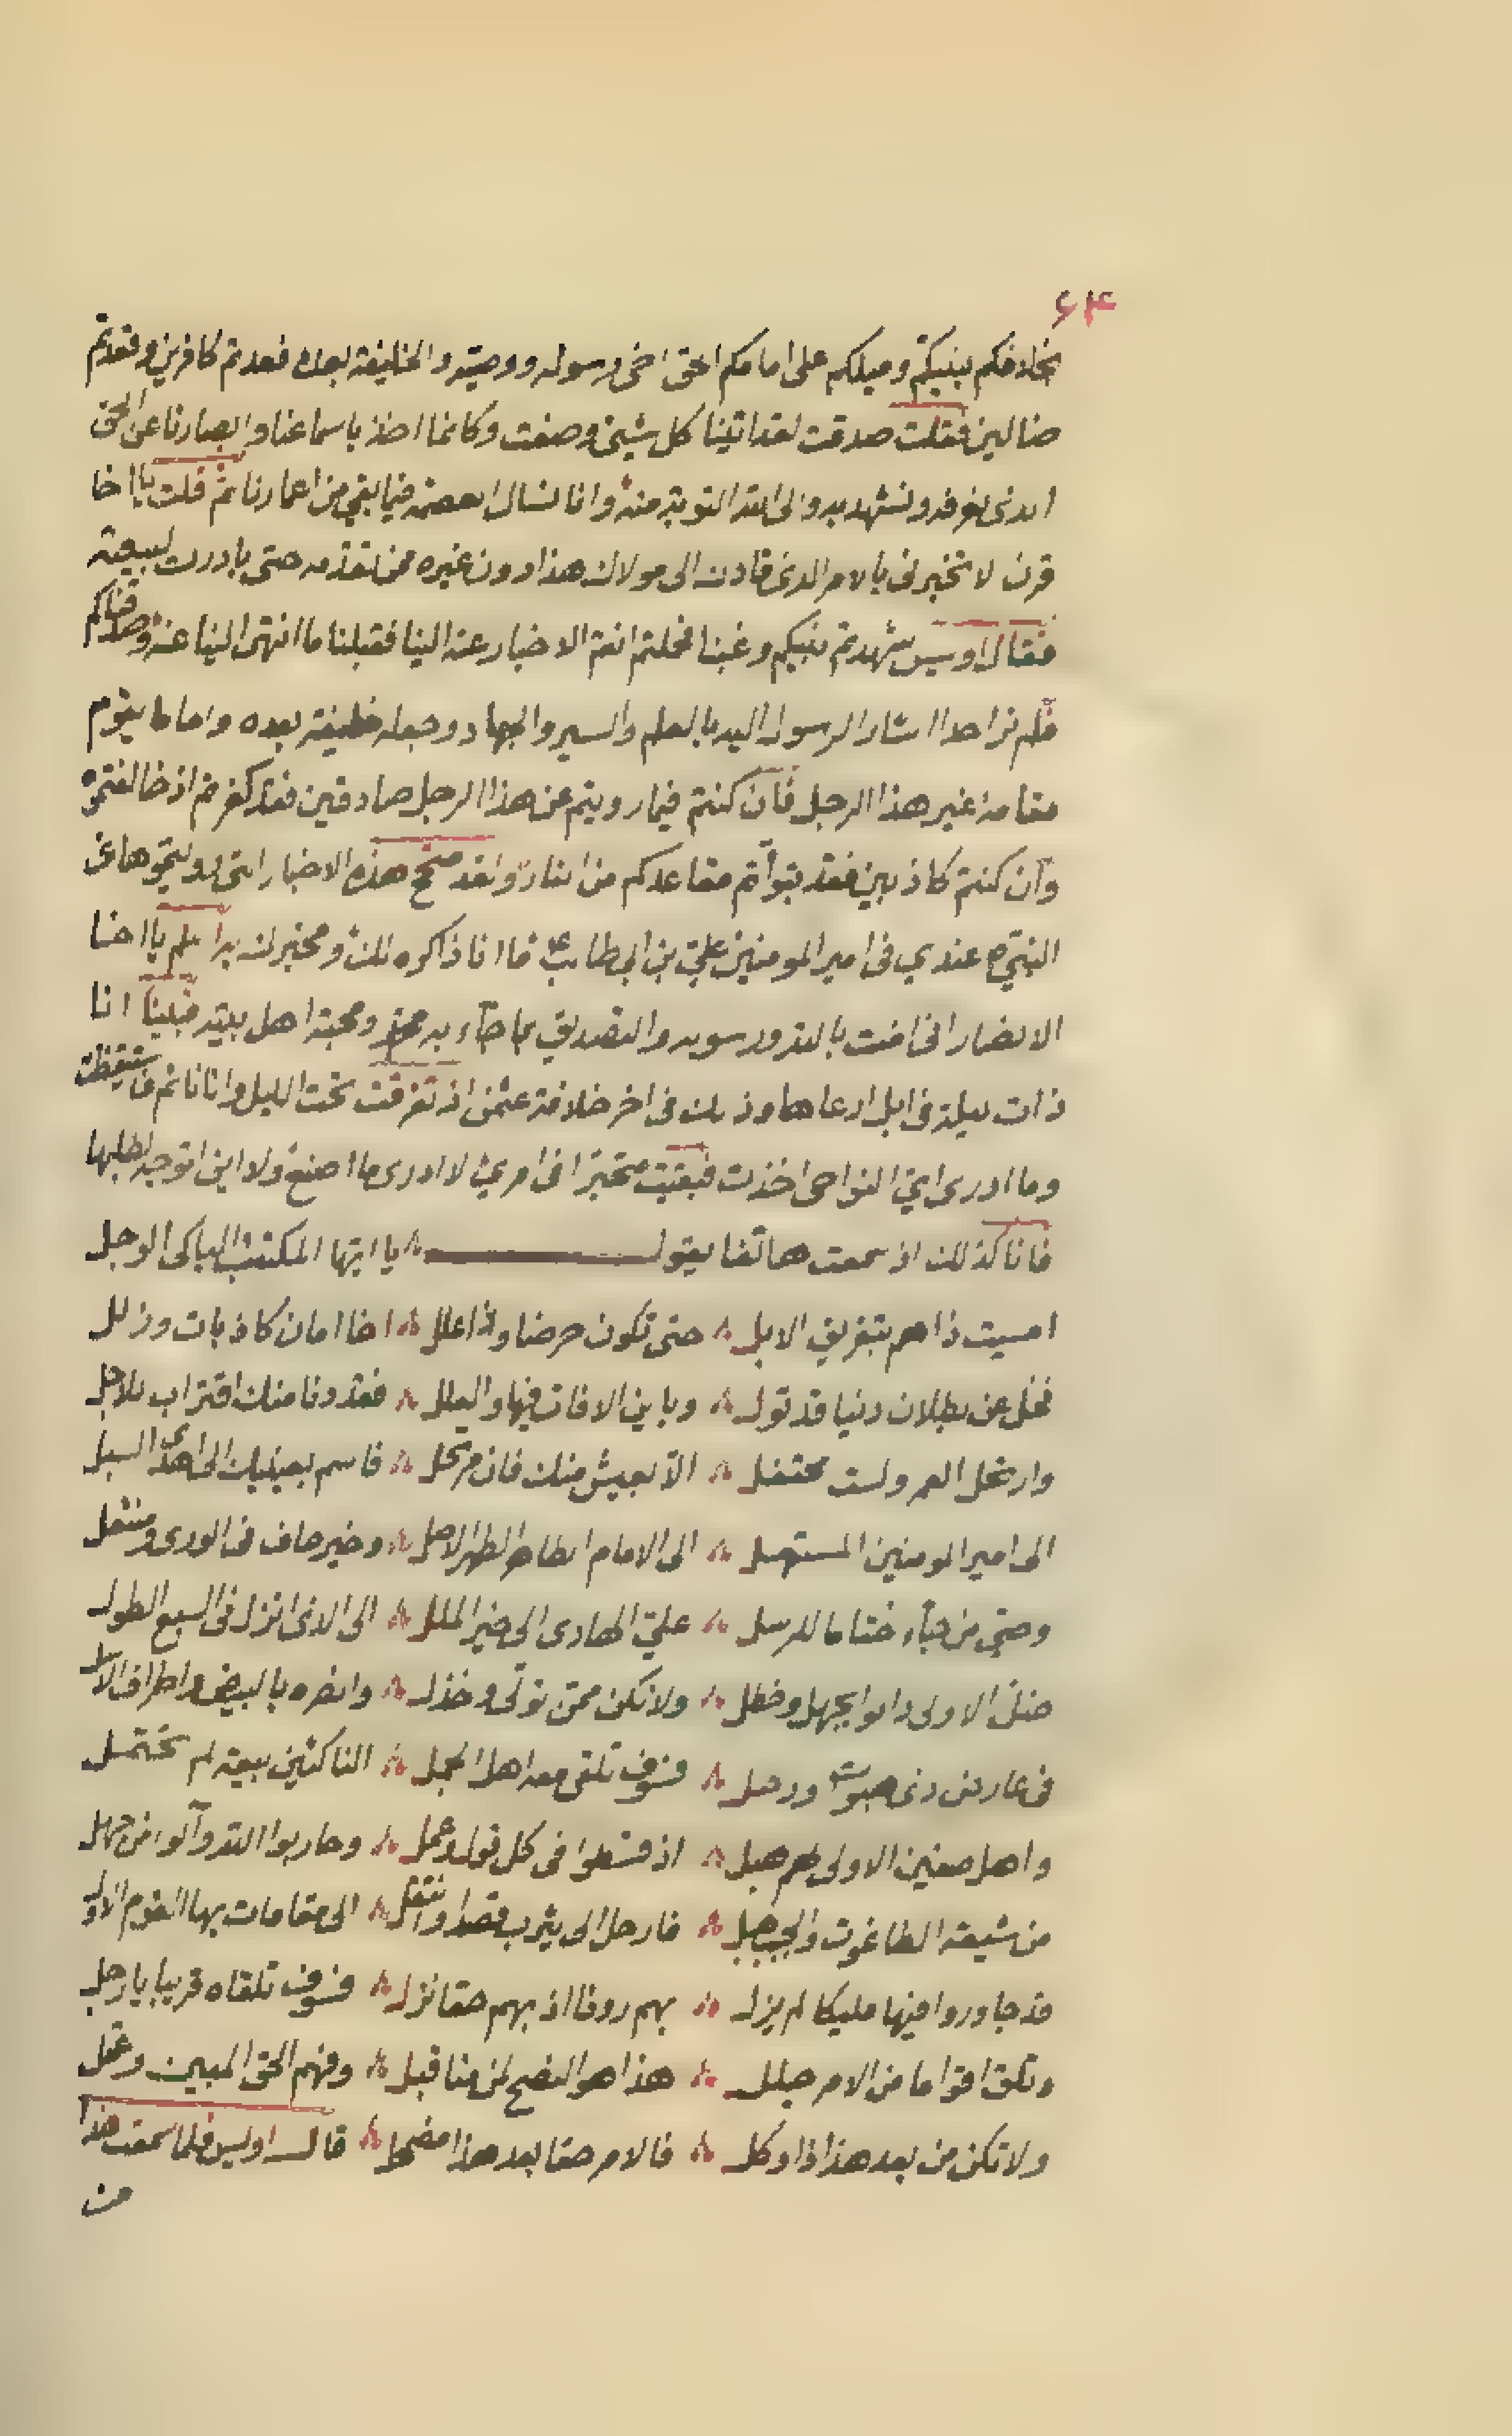 ۶۴
بخلافكم نبيكم وميلكم على امامكم الحق اخى رسوله ووصيته والخليفة بعده فعدتم كافرين وقعدتم
ضالين فقلت صدقت لقد اتينا كل شيئ وصفت وكانما اخذ باسماعنا وابصارنا عن الحق
الذى نعرفه ونشهد به والى الله التوبة منه وانا نسال العصمة فيما بقي من اعمارنا ثم قلت يا اخا
قرن لا تخبرنى بالامر الذى قادك الى مولاك هذا دون غيره ممن تقدمه حتى بادرت لبيعته
فقال اويس شهدتم نبيكم وغبنا فحلتم انتم الاخبار عنه الينا فقبلنا ما انتهى الينا عنه وصدقناكم
فلم نر احدا اشار الرسول اليه بالعلم والسير والجهاد وجعله خليفة بعده واماما يقوم
مقامه غير هذا الرجل فان كنتم فيما رويتم عن هذا الرجل صادقين فقد كفرتم اذ خالفتموه
وان كنتم كاذبين فقد تبوأتم مقاعدكم من النار ولقد صح هذه الاخبار التى رويتموها عن
النبي ص عندي فى امير المومنين علي بن ابي طالب ع فا انا ذاكره لك ومخبرك به اعلم يا اخا
الانصار انى امنت بالله ورسوله والتصديق بما جاء به محمد ومحبة اهل بيته فبينا انا
ذات ليلة فى ابل ارعاها وذلك فى اخر خلافة عثمن اذ تفرقت تحت الليل وانا نائم فاستيقظت
وما ادرى اي النواحى اخذت فبقيت متحيرا فى امري لا ادرى ما اصنع ولا اين اتوجه لطلبها
فانا كذلك اذ سمعت هاتفا يقول ۸ يا ايها المكتئب الباكى الوجل
امسيت ذا هم بتفريق الابل ۸ حتى تكون حرضا وذا علل ۸ اخا امان كاذبات وزلل
فخل عن بطلان دنيا قد تول ۸ وباين الافات فيها والعلل ۸ فقد دنا منك اقتراب للاجل
وارتحل العمر ولست محتفل ۸ الا بعيش منك فان مرتحل ۸ فاسم بعينيك الى اهدى السبل
الى امير المومنين المستهل ۸ الى الامام الطاهر الطهر الاصل ۸ وخير حاف فى الورى ومنتعل
وصى من جاء ختاما للرسل ۸ علي الهادى الى خير الملل ۸ الى الذى انزل فى السبع الطول
ضل الاولى دانوا بجهل وخطل ۸ ولا تكن ممن تولى وخذل ۸ وانصره بالبيض واطراف الاسل
فى عارض ذى ودحل ۸ فسوف تلقى معه اهل الجمل ۸ الناكثين بيعة لم تحتمل
واهل صفين الاولى لهم هبل ۸ اذ قسطوا فى كل قول وعمل ۸ وحاربوا الله وآلوا من جهل
من شيعة الطاغوت والجبت هبل ۸ فارحل الى يثرب قصدا وانتقل ۸ الى مقامات بها القوم الاول
قد جاوروا فيها مليكا لم يزل ۸ بهم روفا اذ بهم حقا نزل ۸ فسوف تلقاه قريبا يا رجل
وتلق اقواما من الامر جلل ۸ هذا هو النصح لمن منا قبل ۸ وفهم الحق المبين وعقل
ولا تكن من بعد هذا ذا وكل ۸ فالامر حقا بعد هذا مضمحل ۸ قال اويس فلما سمعت هذا
من